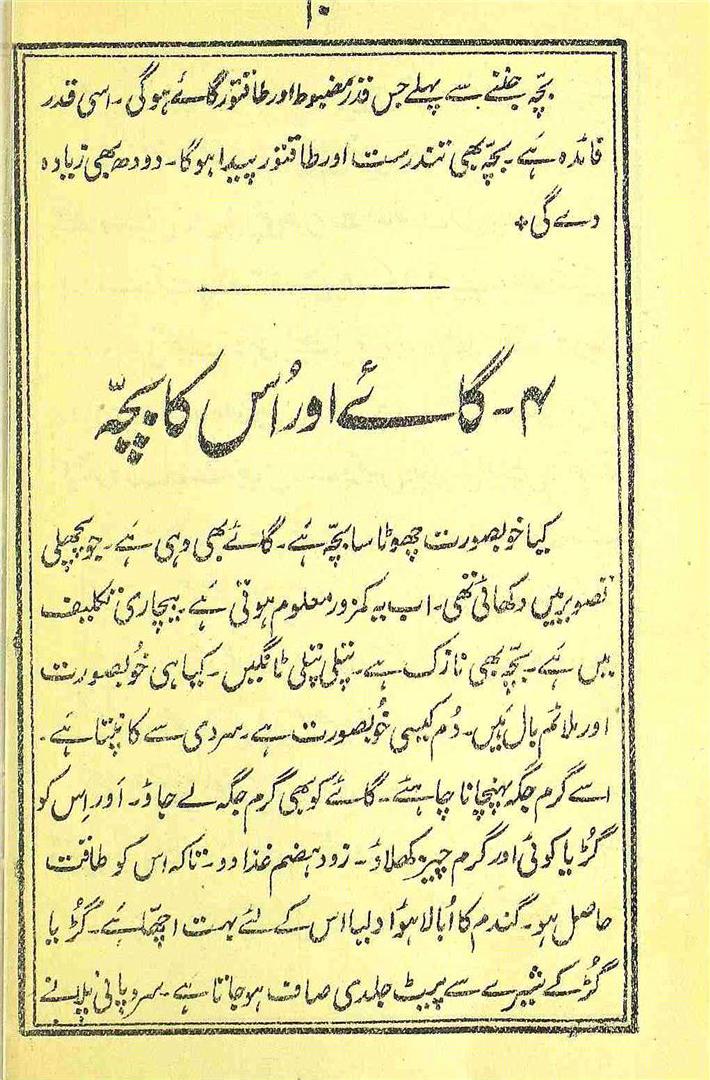 ۱۰
بچّہ جننے سے پہلے جس قدر مضبوط اور طاقتور گائے ہوگی۔ اسی قدر
فائدہ ہَے۔ بچّہ بھی تندرست اور طاقتور پیدا ہوگا۔ دودھ بھی زیادہ
دے گی*
۴۔ گائے اور اُس کا بچّہ
کیا خوبصورت چھوٹا سا بچّہ ہَے۔ گائے بھی وہی ہَے۔ جو پچھلی
تصویر میں دکھائی تھی۔ اب یہ کمزور معلوم ہوتی ہَے۔ بیچاری تکلیف
میں ہَے۔ بچّہ بھی نازک ہے۔ پتلی پتلی ٹانگیں۔ کیا ہی خُوبصورت
اور ملائم بال ہَیں۔ دُم کیسی خُوبصورت ہے۔ سردی سے کانپتا ہَے۔
اسے گرم جگہ پہنچانا چاہئے۔ گائے کو بھی گرم جگہ لے جاؤ۔ اَور اِس کو
گُڑ یا کوئی اور گرم چیز کھلاؤ۔ زود ہضم غذا دو۔ تاکہ اس کو طاقت
حاصل ہو۔ گندم کا اُبالا ہوُا دلیا اس کے لئے بہت اچھّا ہَے۔ گُڑ یا
گُڑ کے شیرے سے پیٹ جلدی صاف ہو جاتا ہَے۔ سرد پانی پلانے